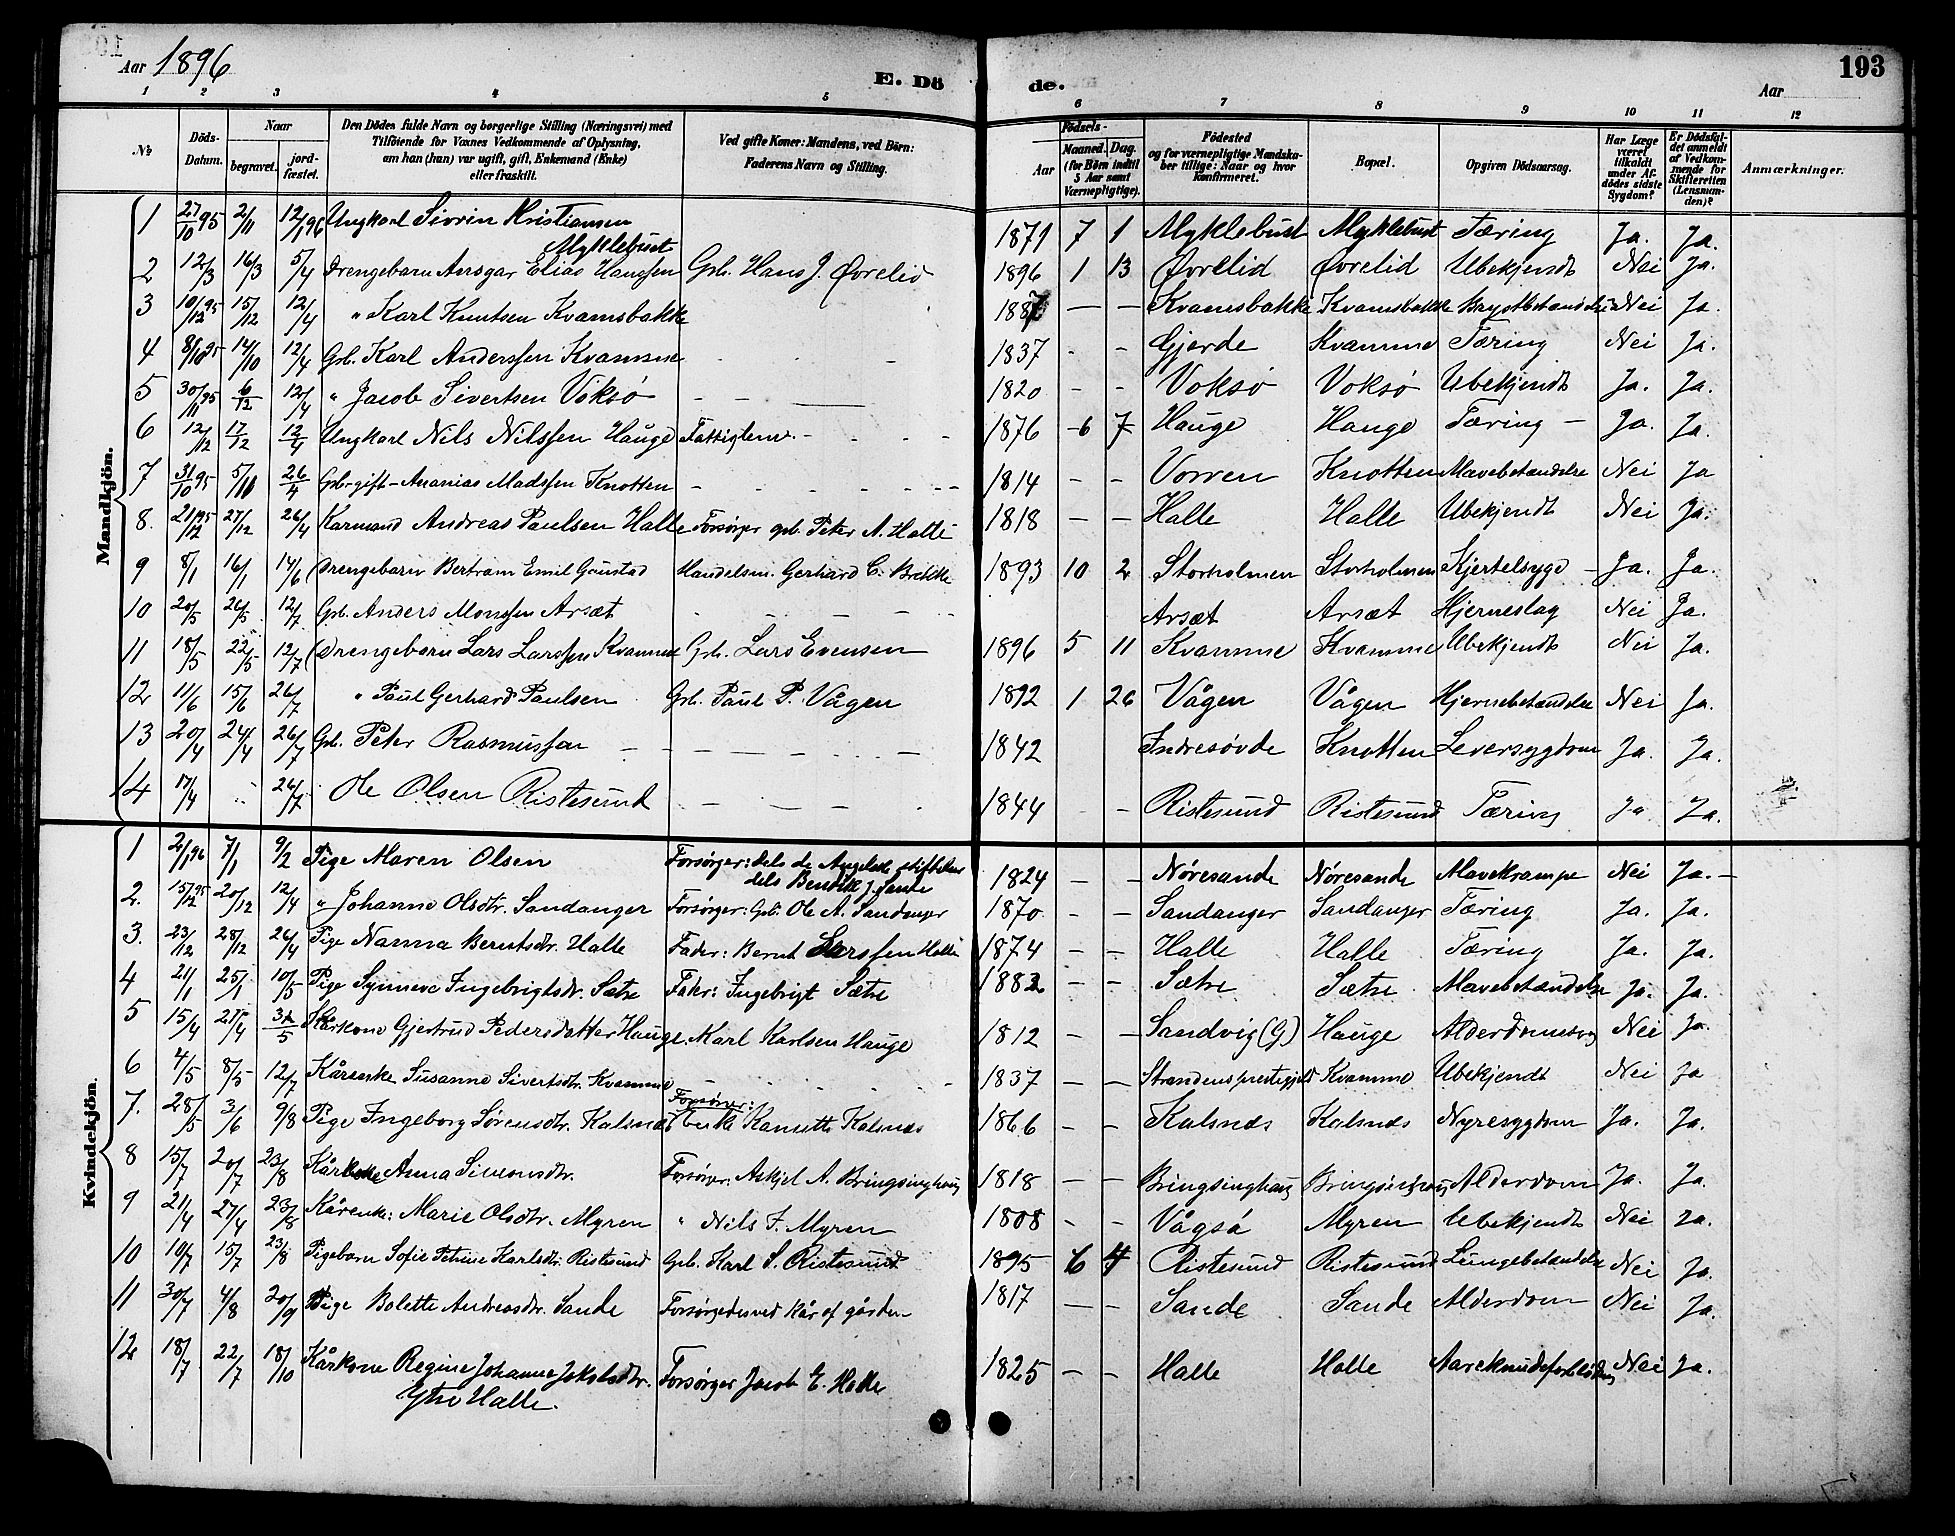 Aar 1896 E. Döde. Aar 193
1 2 3 4 5 6 7 8 9 10 11 12
№ Döds-Datum. Naar begravet. jord-fæstet. Den Dødes fulde Navn og borgerlige Stilling (Næringsvei) med Tilföiende for Voxnes Vedkommende af Oplysning, om han (hun) var ugift, gift, Enkemand (Enke) eller fraskilt. Ved gifte Koner: Mandens, ved Börn: Faderens Navn og Stilling. Födsels- Aar Maaned. Dag. (for Börn indtil 5 Aar samt Værnepligtige). Födested og for værnepligtige Mandskaber tillige: Naar og hvor konfirmeret. Bopæl. Opgiven Dödsaarsag. Har Læge været tilkaldt under Afdödes sidste Sygdom? Er Dödsfaldet anmeldt af Vedkommende for Skifteretten (Lensmanden)? Anmærkninger.
Mandkjön.
1 27/10 95 2/11 12/1 96 Ungkarl Sivrin Kristiansen Myklebust 1871 7 1 Myklebust Myklebust Tæring Ja. Ja.
2 12/3 16/3 5/4 Drengebarn Ansgar Elias Hanssen Grb. Hans J. Øvrelid 1896 1 13 Øvrelid Øvrelid Ubekjendt Nei Ja.
3 10/12 95 15/12 12/4 " Karl Knutsen Kvamsbakke 1887 — — Kvamsbakke Kvamsbakke Brystbetændelse Nei Ja.
4 8/10 95 14/10 12/4 Grb. Karl Anderssen Kvamme 1837 - - Gjerde Kvamme Tæring Nei Ja.
5 30/11 95 6/12 12/4 " Jacob Sivertsen Voksø 1820 - - Voksø Voksø Ubekjendt Ja. Ja.
6 12/12 17/12 12/4 Ungkarl Nils Nilssen Hauge Fattiglem. 1876 6 7 Hauge Hauge Tæring Ja. Ja.
7 31/10 95 5/11 26/4 Grb. gift Ananias Madssen Knotten 1814 - - Vorren Knotten Mavebetændelse Nei Ja
8. 21/12 95 27/12 26/4 Karmand Andreas Paulsen Halle Forsørger grb. Peter A. Halle 1818 — — Halle Halle Ubekjendt Nei Ja.
9 8/1 16/1 14/6 Drengebarn Bertram Emil Gaustad Handelsm. Gerhard C. Brekke 1893 10 2 Storholmen Storholmen Kjertelsyge Ja. Ja.
10 20/5 26/5 12/7 Grb. Anders Monssen Arsæt Arsæt Arsæt Hjerneslag Nei Ja.
11 18/5 22/5 12/7 Drengebarn Lars Larssen Kvamme Grb. Lars Evensen 1896 5 11 Kvamme Kvamme Ubekjendt Nei Ja.
12 11/6 15/6 26/7 " Paul Gerhard Paulsen Grb. Paul P. Vågen 1892 1 26 Vågen Vågen Hjernebetændelse Nei Ja.
13 20/4 24/4 26/7 Grb. Peter Rasmussen 1842 Indresøvde Knotten Leversygdom Ja. Ja.
14 17/4 " 26/7 Ole Olsen Ristesund 1844 - Ristesund Ristesund Tæring Ja Ja.
Kvindekjön.
1 2/1 96 7/1 9/2 Pige Maren Olsen Forsørger: dels de dels Bendik J. Sande 1824 — — Nøresande Nøresande Mavekrampe Nei Ja.
2. 15/12 95 20/12 12/4 " Johanne Olsdtr. Sandanger Forsørger: Grb. Ole A. Sandanger 1870 - — Sandanger Sandanger Tæring Ja. Ja.
3. 23/12 28/12 26/4 Pige Nanna Berntsdtr. Halle Fader: Bernt Larssen Halle 1874 - - Halle Halle Tæring Ja. Ja.
4 21/1 25/1 10/5 Pige Synneve Ingebrigtsdtr. Sætre Fader: Ingebrigt Sætre 1882 - - Sætre Sætre Mavebetændelse Ja. Ja.
5 15/4 21/4 31/5 Kårkone Gjertrud Pedersdatter Hauge Karl Karlsen Hauge 1812 — — Sandvig (G) Hauge Nei Ja.
6 4/5 8/5 12/7 Kårenke Susanne Sivertsdtr. Kvamme 1837 — — Strandens prestegjeld Kvamme Ubekjendt Nei Ja
7. 28/5 3/6 9/8 Pige Ingeborg Sørensdtr. Kalsnæs Forsørger: Enke Kalsnæs 1866 - - Kalsnæs Kalsnæs Nyresygdom Ja. Ja.
8 15/7 20/7 23/8 Kårenke Anna Simonsdtr. Forsørger: Askjel A. Bringsinghaug 1818 — — Bringsinghaug Bringsinghaug Alderdom Ja. Ja.
9 21/4 27/4 23/8 Kårenke: Marie Olsdtr. Myren " Nils J. Myren 1808 - - Vågsø Myren Ubekjendt Nei Ja.
10 10/7 15/7 23/8 Pigebarn Sofie Petrine Karlsdtr. Ristesund Grb. Karl S. Ristesund 1895 6 4 Ristesund Ristesund Lungebetændelse Nei Ja.
11 30/7 4/8 20/9 Pige Bolette Andreasdtr. Sande Forsørgedes ved kår af gården 1817 — — Sande Sande Alderdom Nei Ja.
12 18/7 22/7 18/10 Kårkone Regine Johanne Jakobsdtr. Forsørger Jacob E. Halle 1825 — - Halle Halle Aareknudeforblødning Nei Ja.
Ytre Halle.